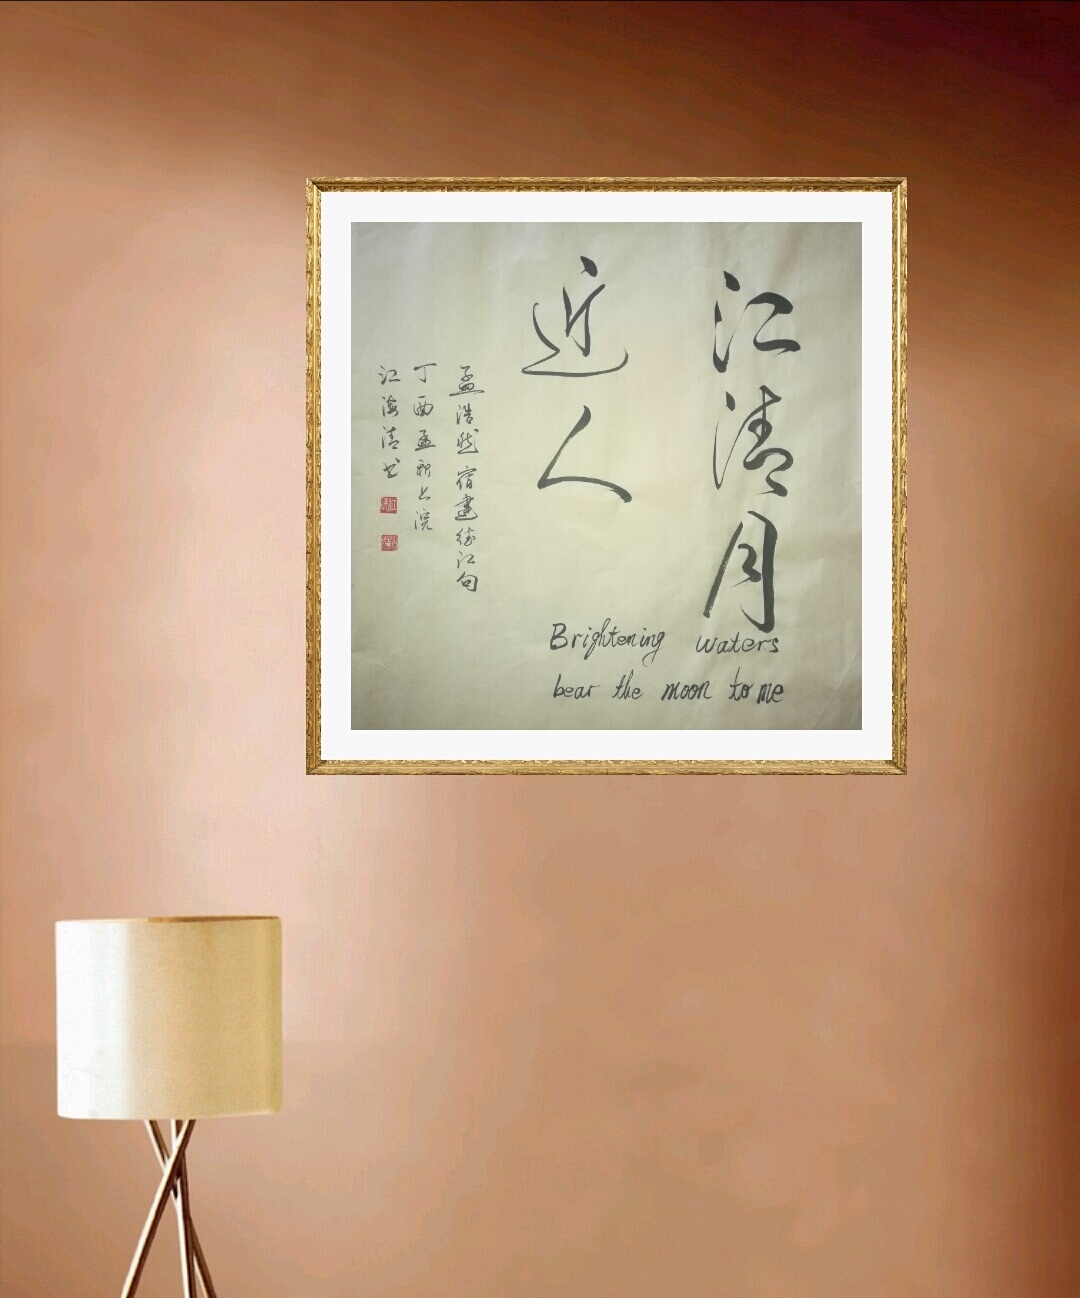 江清月
近人
孟浩然宿建德江句
丁酉孟秋上浣
江海清书
Brightening waters
bear the moon to me